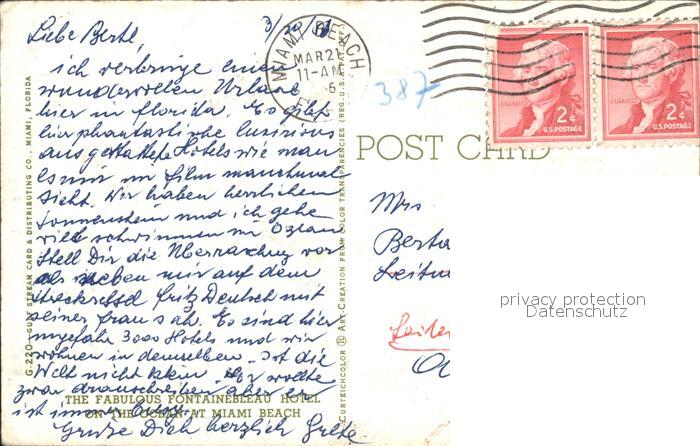 Liebe Bertl,
3/20/
ich verbringe einen
wundervollen Urlaub
hier in Florida. Es gibt
hier phantastische luxuriös
ausgestattete Hotels wie man
es nur im Film manchmal
sieht. Wir haben herrlichen
Sonnenschein und ich gehe
viel schwimmen im Ozean
Stell Dir die Überraschung vor
als neben mir auf dem
Strecksessel Fritz Deutsch mit
seiner Frau sah. Es sind hier
ungefähr 3000 Hotels und wir
wohnen in demselben. Ist die
Welt nicht klein. Er wollte
zwar dranschreiben aber er
ist immer
Grüße Dich herzlich Grete
THE FABULOUS FONTAINEBLEAU HOTEL
ON THE OCEAN AT MIAMI BEACH
G.220—GULF STREAM CARD & DISTRIBUTING CO., MIAMI, FLORIDA
CURTEICHCOLOR ® ART-CREATION FROM COLOR TRANSPARENCIES (REG. U.S.A. PAT. OFF.)
MIAMI BEACH
MAR 21
11-AM
387
JEFFERSON
2¢
U.S. POSTAGE
JEFFERSON
2¢
U.S. POSTAGE
POST CARD
Mrs
Berta
privacy protection
Datenschutz